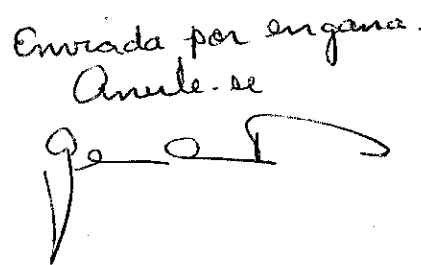 Enviada por engano.
Anule-se